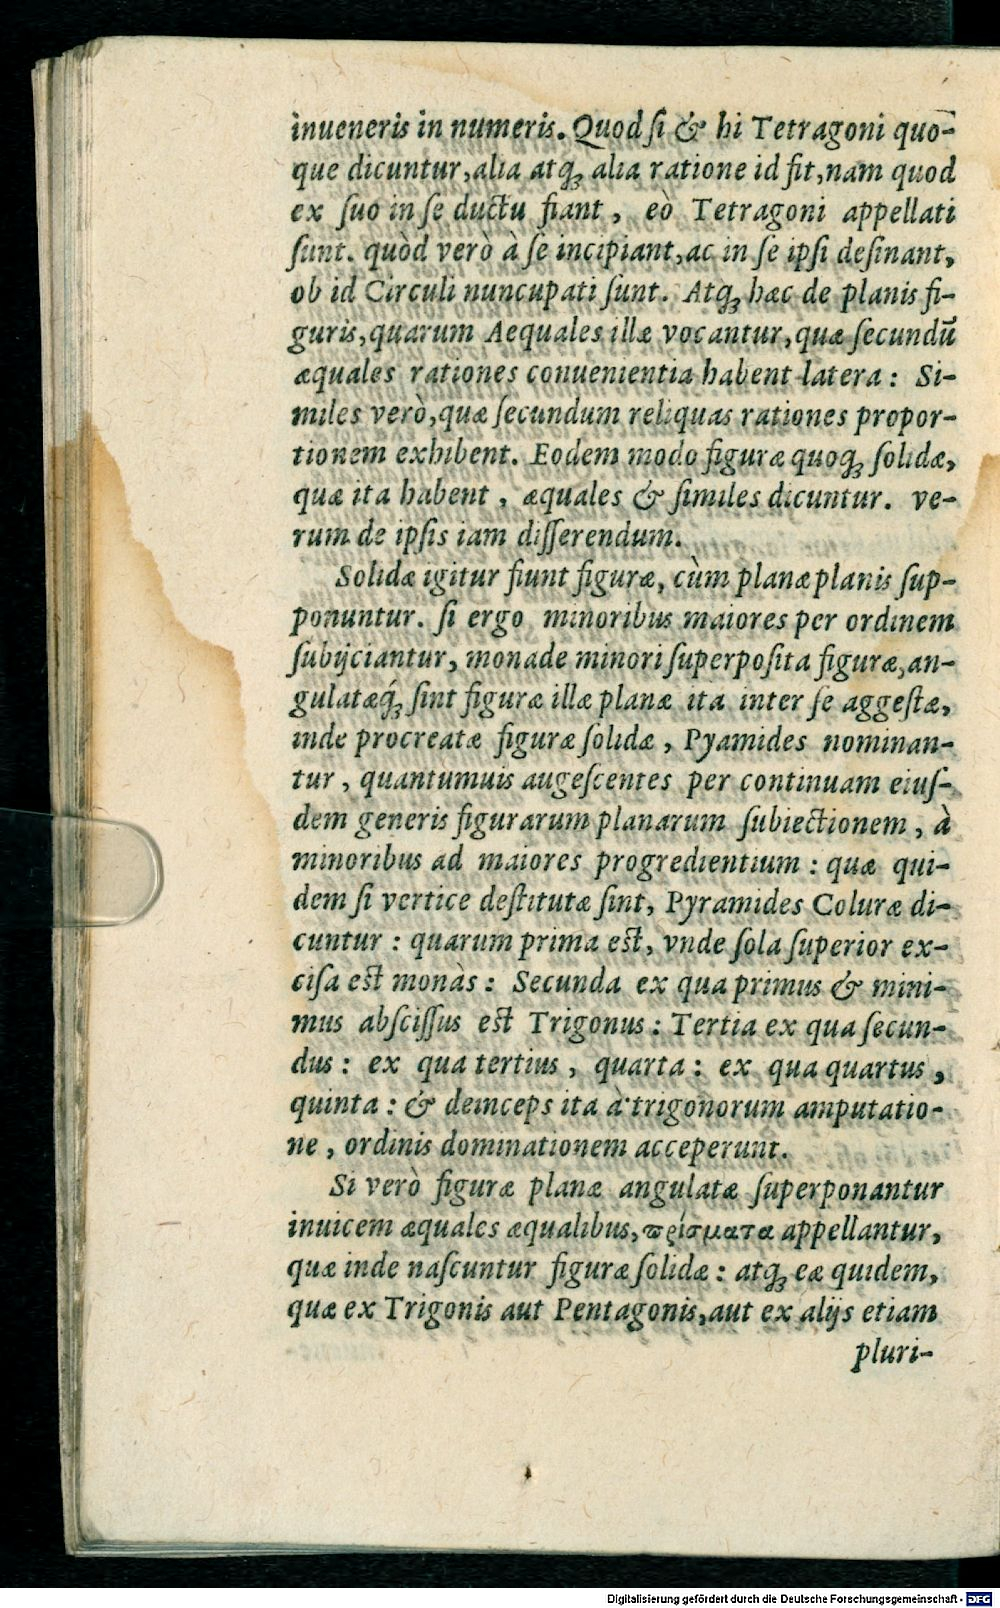 inueneris in numeris. Quod ſi & hi Tetragoni quo-
que dicuntur, alia atq; alia ratione id fit, nam quod
ex ſuo in ſe ductu fiant, eò Tetragoni appellati
ſunt. quòd verò à ſe incipiant, ac in ſe ipſi deſinant,
ob id Circuli nuncupati ſunt. Atq; hæc de planis fi-
guris, quarum Aequales illæ vocantur, quæ ſecundū
æquales rationes conuenientia habent latera: Si-
miles verò, quæ ſecundum reliquas rationes propor-
tionem exhibent. Eodem modo figuræ quoq; ſolidæ,
quæ ita habent, æquales & ſimiles dicuntur. ve-
rum de ipſis iam diſſerendum.
Solidæ igitur fiunt figuræ, cùm planæ planis ſup-
ponuntur. ſi ergo minoribus maiores per ordinem
ſubijciantur, monade minori ſuperpoſita figuræ, an-
gulatæq́; ſint figuræ illæ planæ ita inter ſe aggeſtæ,
inde procreatæ figuræ ſolidæ, Pyamides nominan-
tur, quantumuis augeſcentes per continuam eiuſ-
dem generis figurarum planarum ſubiectionem, à
minoribus ad maiores progredientium: quæ qui-
dem ſi vertice deſtitutæ ſint, Pyramides Coluræ di-
cuntur: quarum prima eſt, vnde ſola ſuperior ex-
ciſa eſt monàs: Secunda ex qua primus & mini-
mus abſciſſus eſt Trigonus: Tertia ex qua ſecun-
dus: ex qua tertius, quarta: ex qua quartus,
quinta: & deinceps ita à trigonorum amputatio-
ne, ordinis dominationem acceperunt.
Si verò figuræ planæ angulatæ ſuperponantur
inuicem æquales æqualibus, ϖρίσματα appellantur,
quæ inde naſcuntur figuræ ſolidæ: atq; eæ quidem,
quæ ex Trigonis aut Pentagonis, aut ex alijs etiam
pluri-
Digitalisierung gefördert durch die Deutsche Forschungsgemeinschaft - DFG